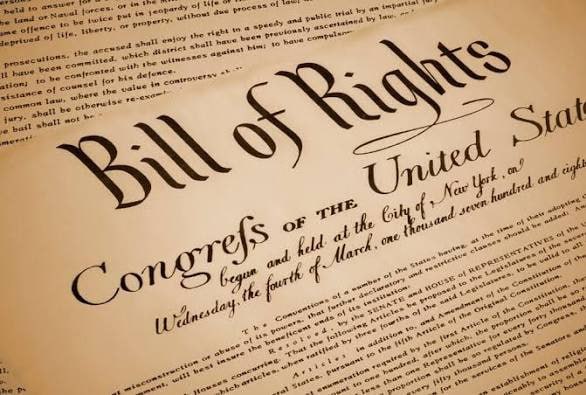 held to answer for a
the land or Naval forces, or in the Mi
ame offence to be twice put in jeopardy of life or
deprived of life, liberty, or property, without due process of law;
prosecutions, the accused shall enjoy the right to a speedy and public trial by an impartial jury
ll have been committed, which district shall have been previously ascertained by law, and
ation; to be confronted with the witnesses against him; to have compulsor
sistance of counsel for his defence.
common law, where the value in controversy
jury, shall be otherwise re-exam
ve bail shall not be
Bill of Rights
Congreſs OF THE United State
begun and held at the City of New York, on
Wednesday, the fourth of March, one thousand seven hundred and eighty
The Conventions of a number of the States having, at the time of their adopting
misconstruction or abuse of its powers, that further declaratory and restrictive clauses should be added: An
ment, will best insure the beneficent ends of its institution:
Resolved, by the SENATE and HOUSE of REPRESENTATIVES of the U
Houses concurring, That the following Articles be proposed to the Legislatures of the several
which articles, when ratified by three fourths of the said Legislatures, to be
Articles in addition to, and Amendment of the Constitution of the
eral States, pursuant to the fifth Article of the Original Constitution.
enumeration required by the first Article of the Constitution, th
nt to one hundred, after which, the proportion shall be so
than one Representative for every forty thousan
proportion shall be so regulated by Congress,
fifty thousand persons.
for the services of the Senators
an establishment of religion